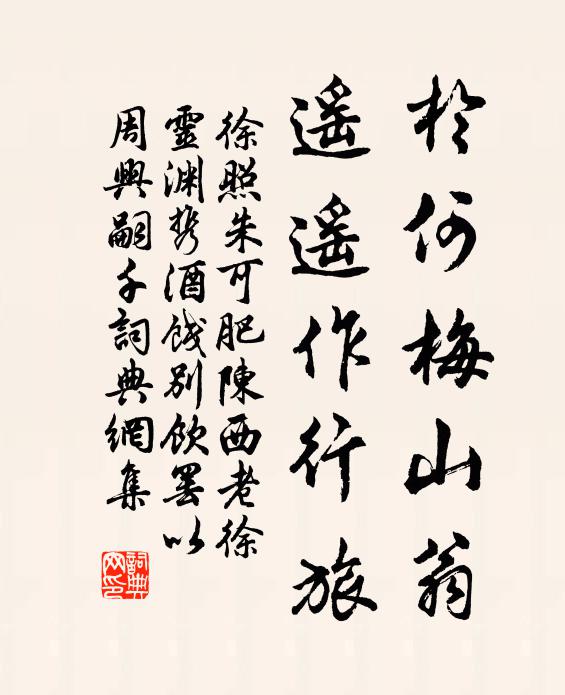 於何梅山翁
遥遥作行旅
徐照朱可肥陳西老徐
靈淵携酒餞別飲罷以
周興嗣千詞典網集
詞典
网印